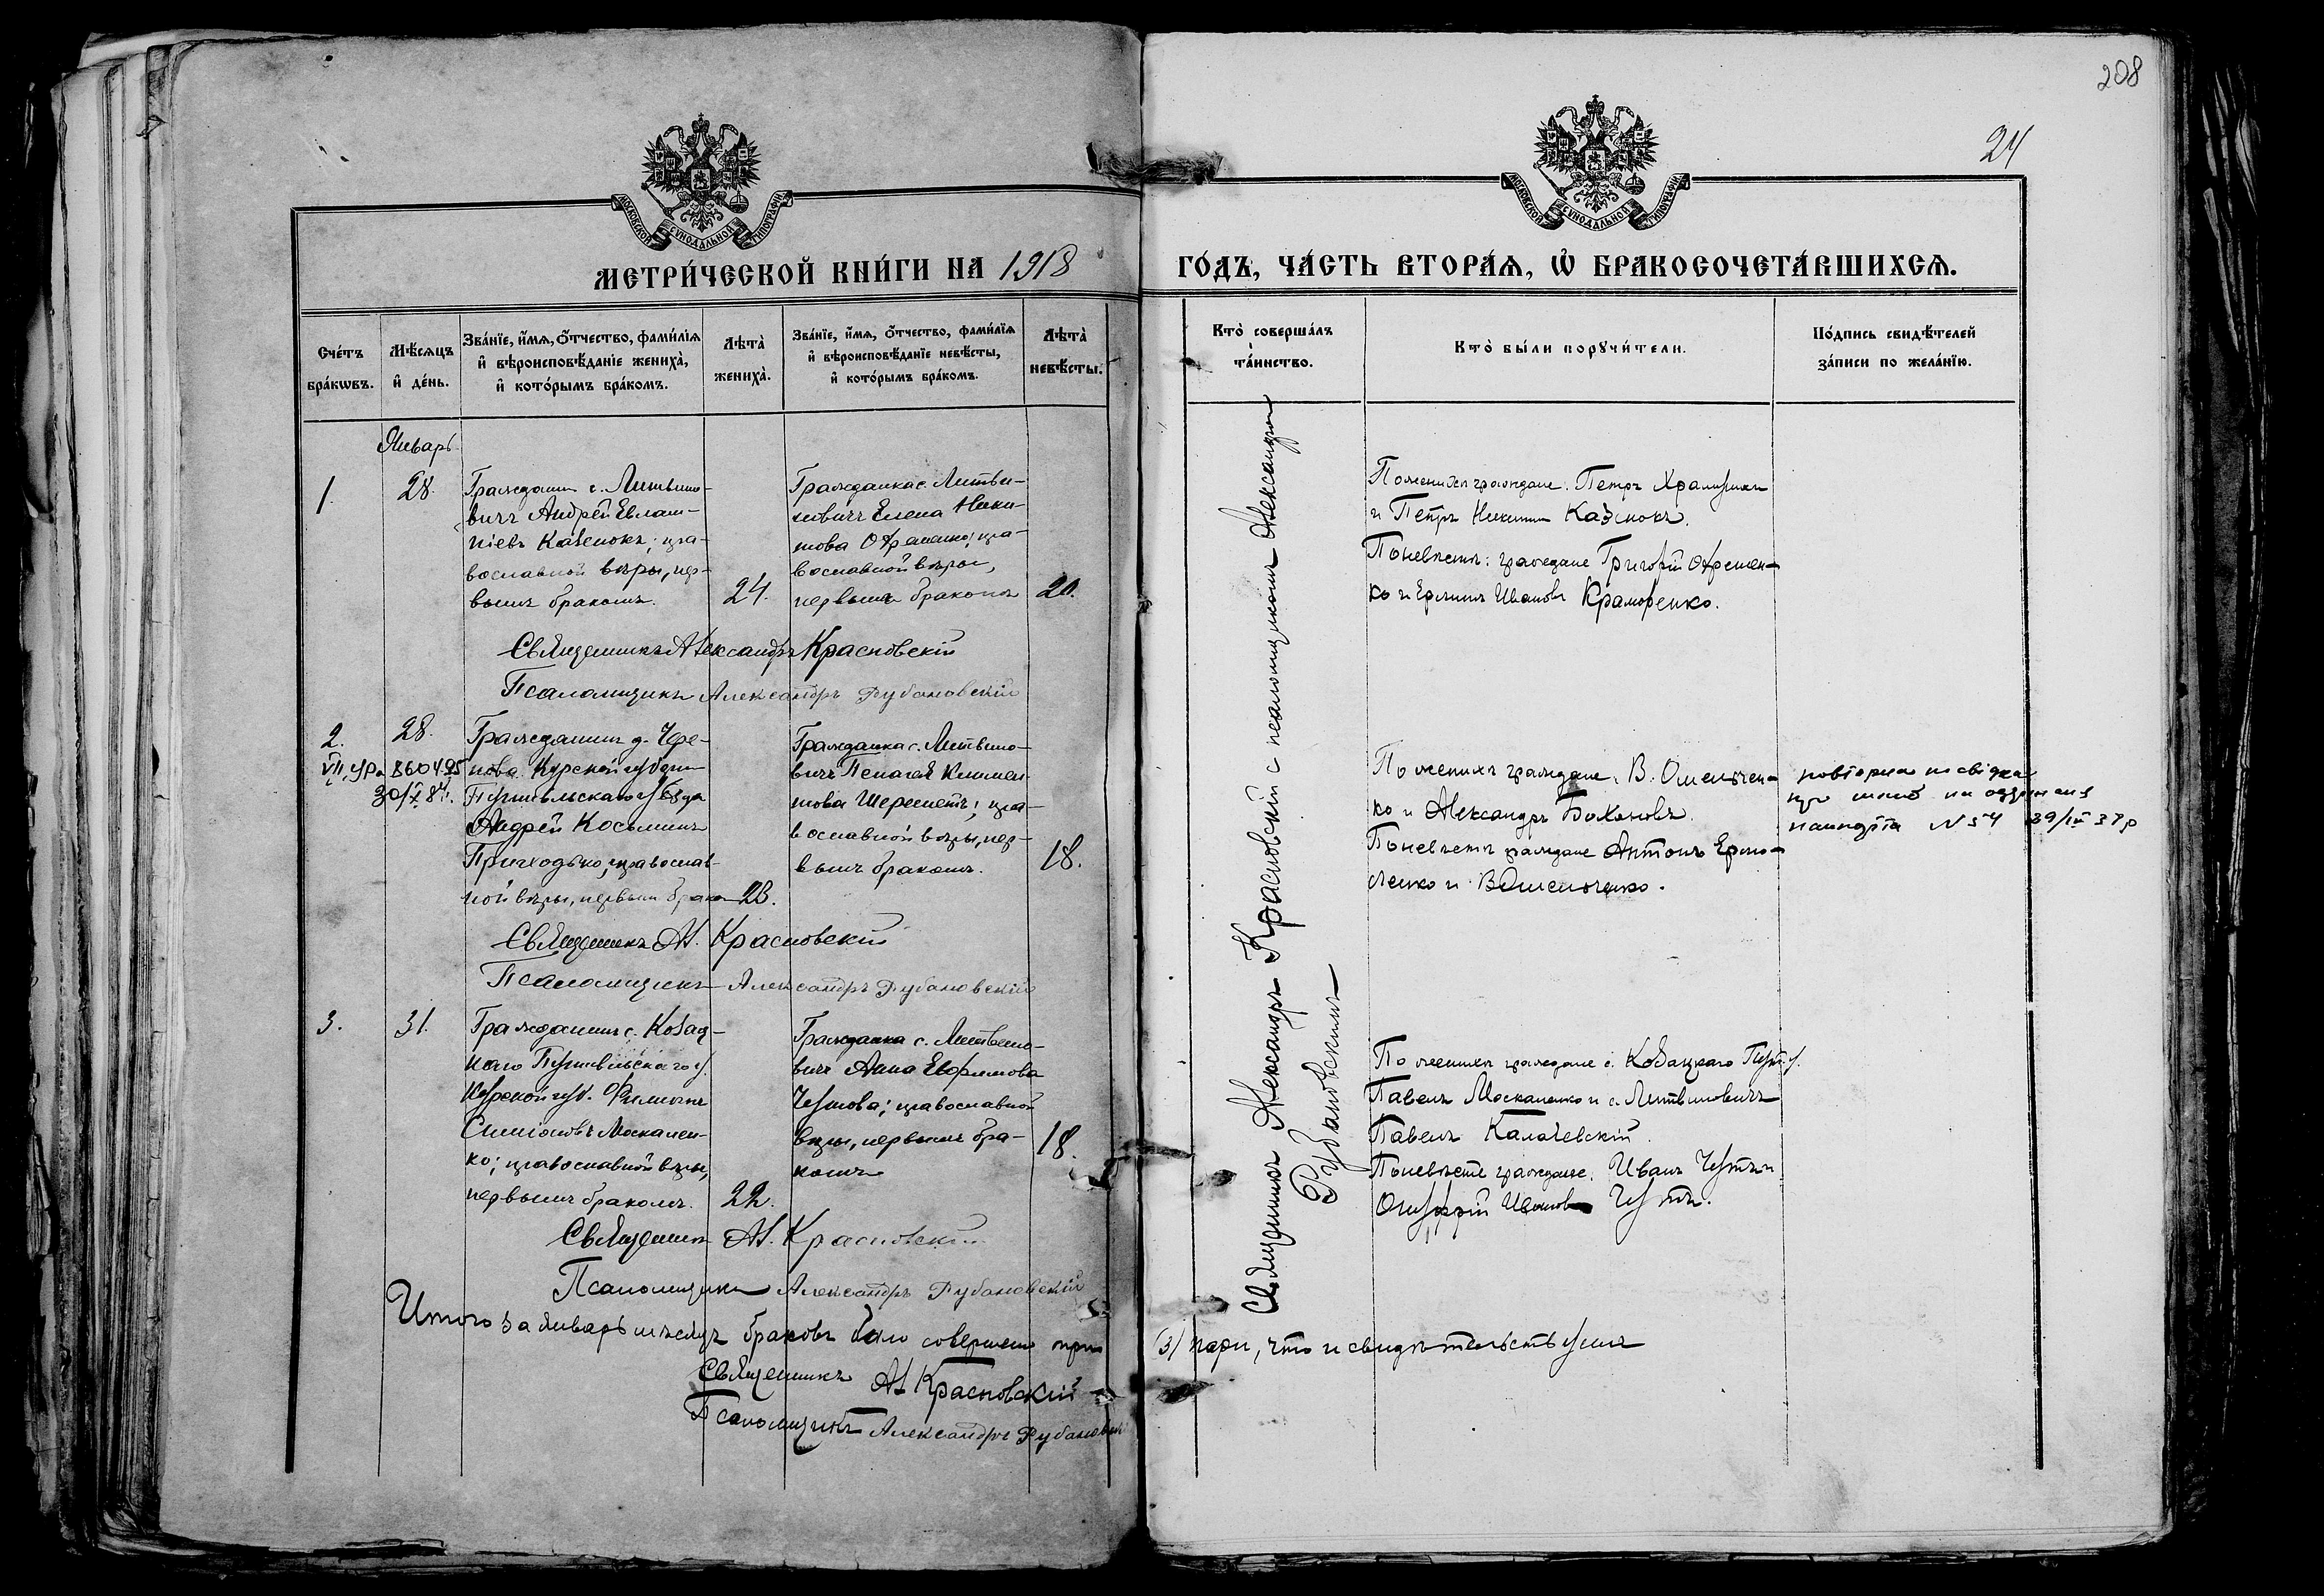 208
24
МОСКОВСКОЙ СѴНОДАЛЬНОЙ ТИПОГРАФІИ
МОСКОВСКОЙ СѴНОДАЛЬНОЙ ТИПОГРАФІИ
МЕТРИ́ЧЕСКОЙ КНИ́ГИ НА 1918
ГО́ДЪ, ЧА́СТЬ ВТОРА́Я, Ѡ҆ БРАКОСОЧЕТА́ВШИХСЯ.
Сче́тъ
бра́кѡвъ.
Мѣ́сяцъ
и҆ де́нь.
Зва́нїе, и҆́мя, ѻ҆́тчество, фами́лїя
и҆ вѣроисповѣ́данїе жениха̀,
и҆ кото́рымъ бра́комъ.
Лѣта̀
жениха̀.
Зва́нїе, и҆́мя, ѻ҆́тчество, фами́лїя
и҆ вѣроисповѣ́данїе невѣ́сты,
и҆ кото́рымъ бра́комъ.
Лѣта̀
невѣ́сты.
Кто̀ соверша́лъ
та́инство.
Кто̀ бы́ли порꙋчи́тели.
По́дпись свидѣ́телей
за́писи по жела́нїю.
Январь
1.
28.
Гражданин с. Литвино-
вичъ Андрей Евлам-
піевъ Казенокъ; пра-
вославной вѣры, пер-
вымъ бракомъ.
24.
Гражданка с. Литви-
новичъ Елена Ники-
това Охрименко; пра-
вославной вѣры,
первымъ бракомъ
20.
По женихѣ граждане: Петръ
и Петръ Никитин Казенокъ.
По невѣстѣ: граждане Григорій Охримен-
ко и Иванов Крамаренко.
Священникъ Александръ Красновскій
Псаломщикъ Александръ Рубановскій
2.
28.
VII УР № 860495
30/X 84.
Гражданинъ д. Чере-
пова Курской губерн
Путивльскаго уѣзда
Андрей Косьминъ
Приходько, православ-
ной вѣры, первым брако
23.
Гражданка с. Литвино-
вичъ Пелагея Климен-
това Шереметъ; пра-
вославной вѣры, пер-
вымъ бракомъ.
18.
По женихѣ граждане: В. Омельчен-
ко и Александръ Бохановъ.
По невѣстѣ граждане Антонъ Ермо-
ленко и В Омельченко.
повторна посвідка
про шлюб на одержання
пашпорта N 54
Священникъ Ал. Красновскій
Псаломщикъ Александръ Рубановскій
3.
31.
Гражданинъ с. Козац-
каго Путивльскаго у.
Курской губ. Филиппъ
Симоновъ Москален-
ко; православной вѣры,
первымъ бракомъ.
22.
Гражданка с. Литвино-
вичъ Анна Евфимова
Чутова; православной
вѣры, первымъ бра-
комъ
18.
По женихѣ граждане с. Козацкаго Пут. у.
Павелъ Москаленко и с. Литвиновичъ
Павелъ Калачевскій.
По невѣстѣ граждане: Иванъ Чутъ и
Онуфрій Иванов Чутъ.
Священник Ал. Красновскій
Псаломщикъ Александръ Рубановскій
Священникъ Александръ Красновскій с псаломщикомъ Александром
Рубановскимъ
Итого за январь мѣсяцъ браковъ было совершено три (3) пары, что и свидѣтельствуемъ
Священникъ Ал Красновскій
Псаломщикъ Александръ Рубановскій